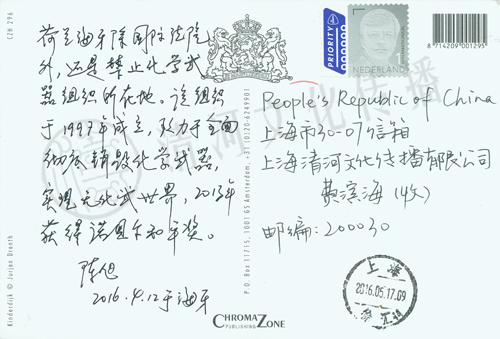 CZH 296
荷兰海牙除国际法院
外,还是禁止化学武
器组织所在地。该组织
于1997年成立,致力于全面
彻底销毁化学武器,
实现无化武世界,2013年
获得诺贝尔和平奖。
陈旭
2016.4.12于海牙
Kinderdijk © Jurjen Drenth
P.O. Box 11715, 1001 GS Amsterdam, +31 (0)20-6249901
CHROMAZONE
PUBLISHING
PRIORITY
NEDERLAND
1
8 714209 001295
People's Republic of China
上海市30-07信箱
上海清河文化传播有限公司
费滨海(收)
邮编:200030
上海
2016.05.17.09
清河文化传播